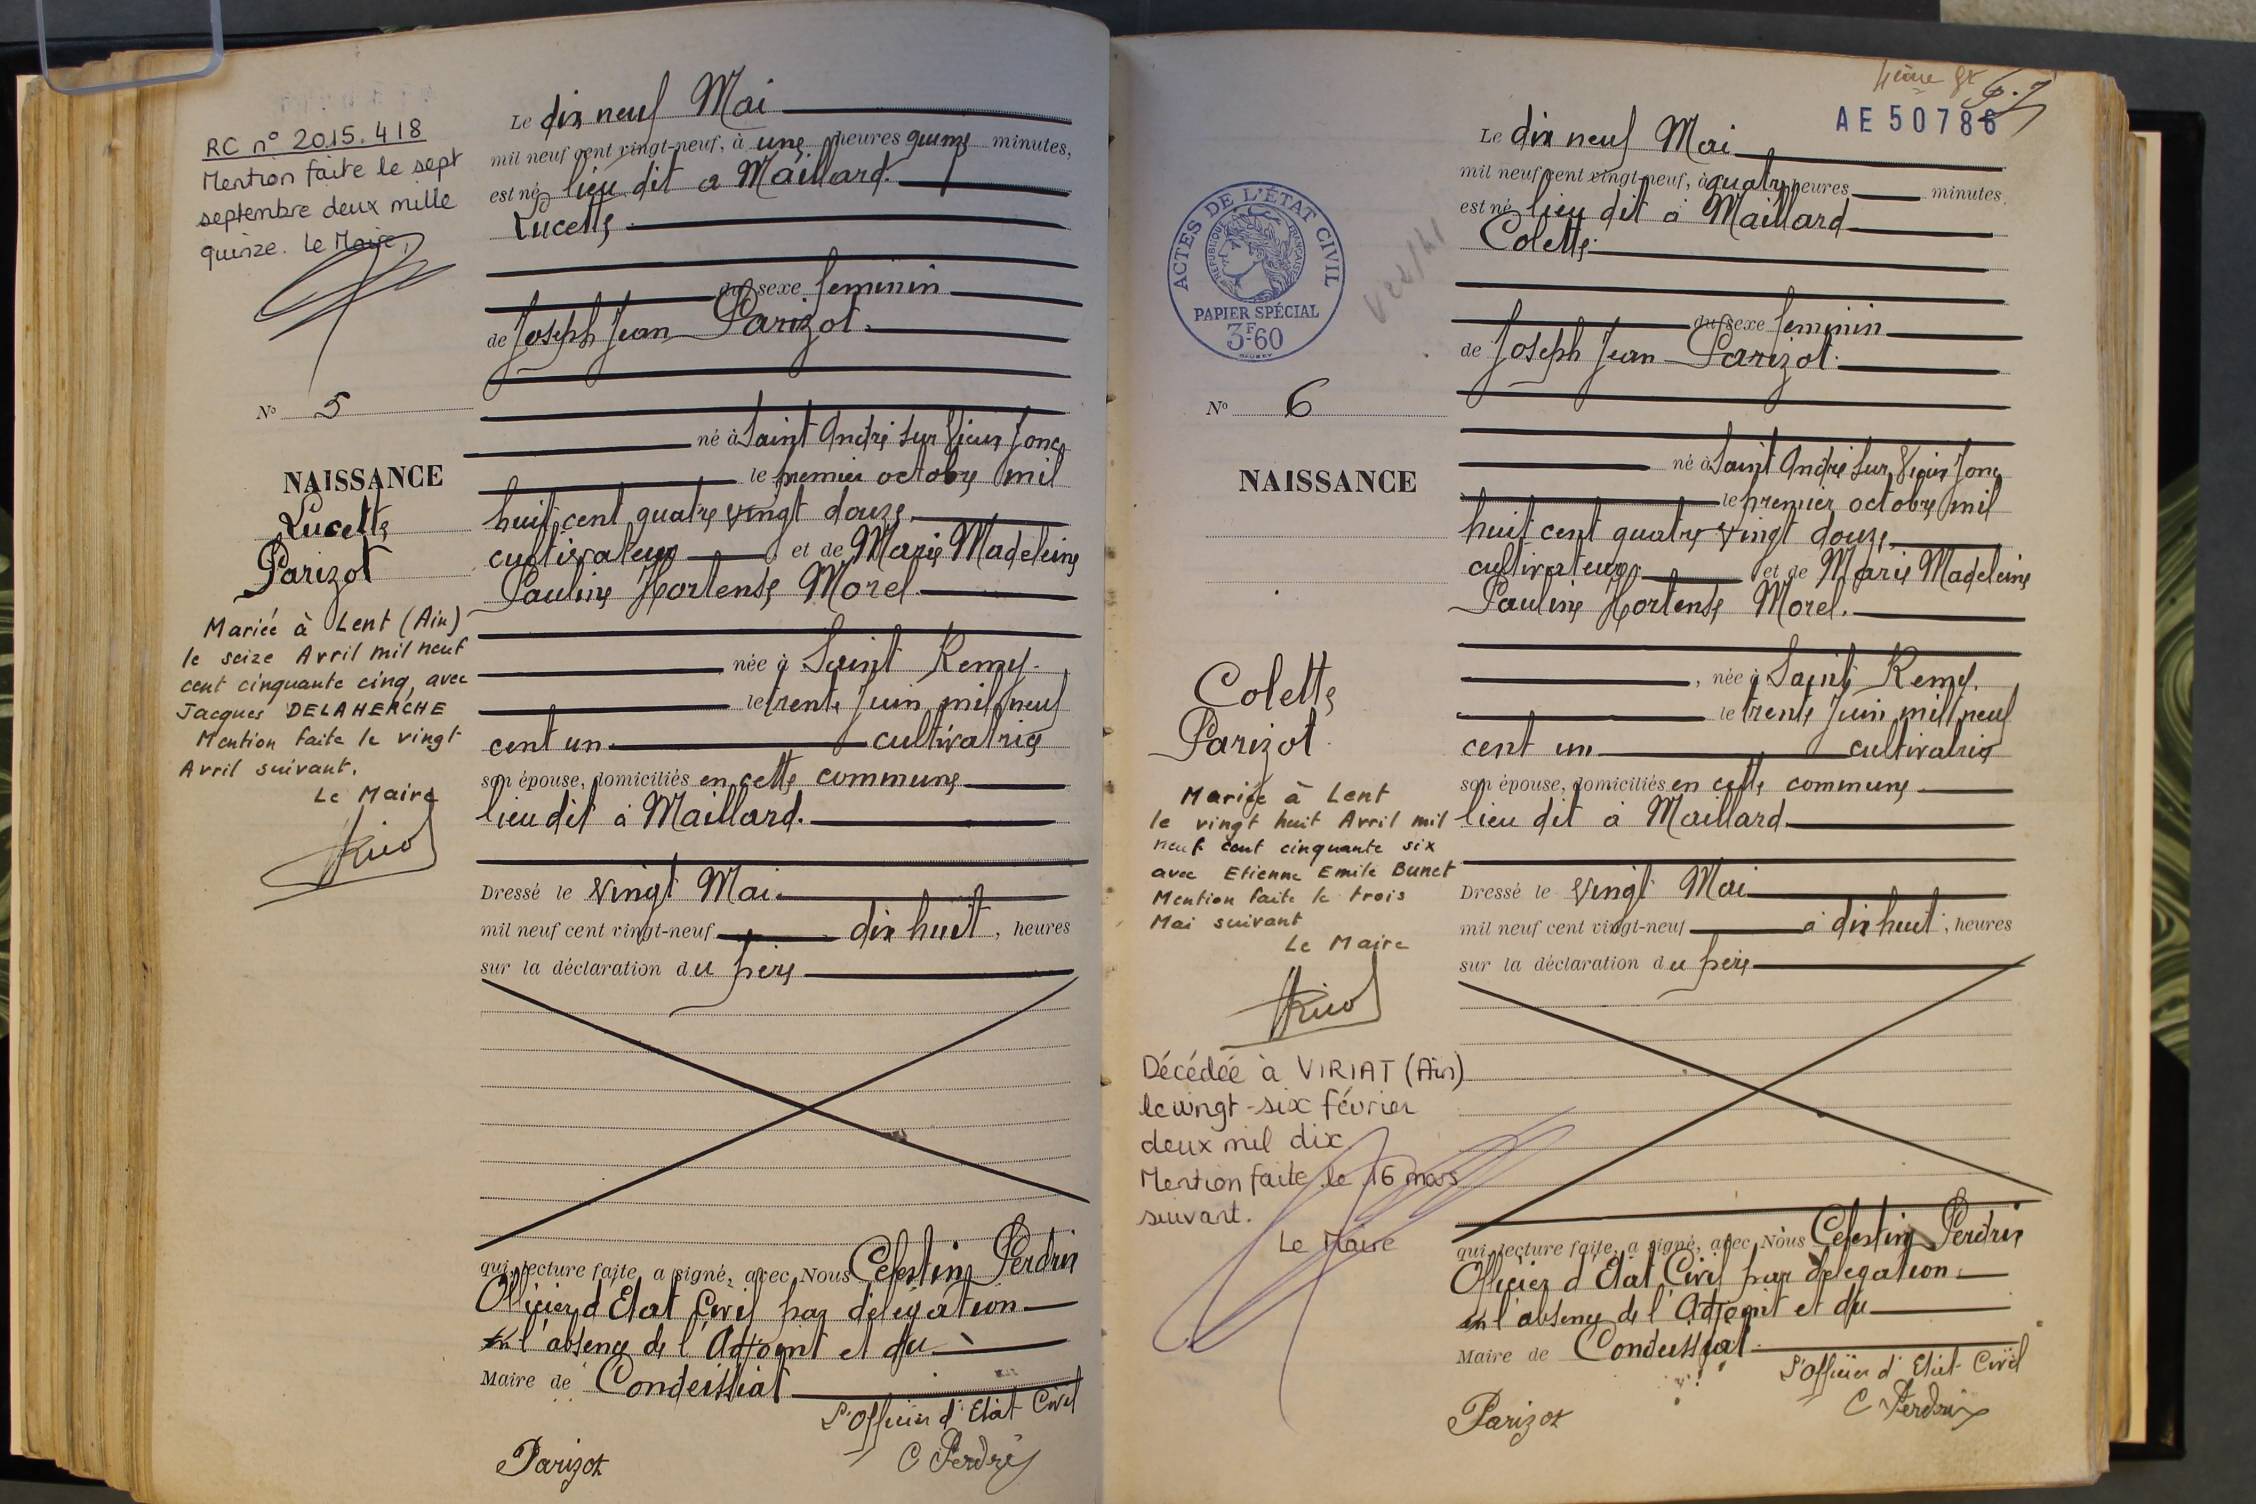 RC n° 2015.418
Mention faite le sept
septembre deux mille
quinze. Le Maire,
N° 5
NAISSANCE
Lucette
Parizot
Mariée à Lent (Ain)
le seize Avril mil neuf
cent cinquante cinq, avec
Jacques DELAHERCHE
Mention faite le vingt
Avril suivant.
Le Maire
Le dix neuf Mai
mil neuf cent vingt-neuf, à une heures quinze minutes,
est né lieu dit a Maillard.
Lucette
du sexe feminin
de Joseph Jean Parizot.
né à Saint André sur Vieux Jonc
le premier octobre mil
huit cent quatre vingt douze
cultivateur et de Marie Madeleine
Pauline Hortense Morel
née à Saint Remy.
le trente Juin mil neuf
cent un cultivatrice
son épouse, domiciliés en cette commune
lieu dit à Maillard.
Dressé le vingt Mai
mil neuf cent vingt-neuf dix huit, heures
sur la déclaration du père
qui, lecture faite, a signé, avec Nous Celestin Perdrix
Officier d'Etat Civil par délégation
en l'absence de l'Adjoint et du
Maire de Condeissiat
L'Officier d'Etat Civil
Parizot
C Perdrix
4ème
AE 50786
ACTES DE L'ÉTAT CIVIL
RÉPUBLIQUE FRANÇAISE
PAPIER SPÉCIAL
3F60
N° 6
NAISSANCE
Colette
Parizot
Mariée à Lent
le vingt huit Avril mil
neuf cent cinquante six
avec Etienne Emile Bunet
Mention faite le trois
Mai suivant
Le Maire
Décédée à VIRIAT (Ain)
le vingt-six février
deux mil dix
Mention faite le 16 mars
suivant.
Le Maire
Le dix neuf Mai
mil neuf cent vingt-neuf, à quatre heures minutes,
est né lieu dit à Maillard
Colette
du sexe feminin
de Joseph Jean Parizot.
né à Saint André sur Vieux Jonc
le premier octobre mil
huit cent quatre vingt douze
cultivateur et de Marie Madeleine
Pauline Hortense Morel.
, née à Saint Remy.
le trente Juin mil neuf
cent un cultivatrice
son épouse, domiciliés en cette commune
lieu dit à Maillard
Dressé le vingt Mai
mil neuf cent vingt-neuf à dix huit, heures
sur la déclaration du père
qui, lecture faite, a signé, avec Nous Celestin Perdrix
Officier d'Etat Civil par delegation
en l'absence de l'Adjoint et du
Maire de Condeissiat
L'Officier d'Etat Civil
Parizot
C Perdrix